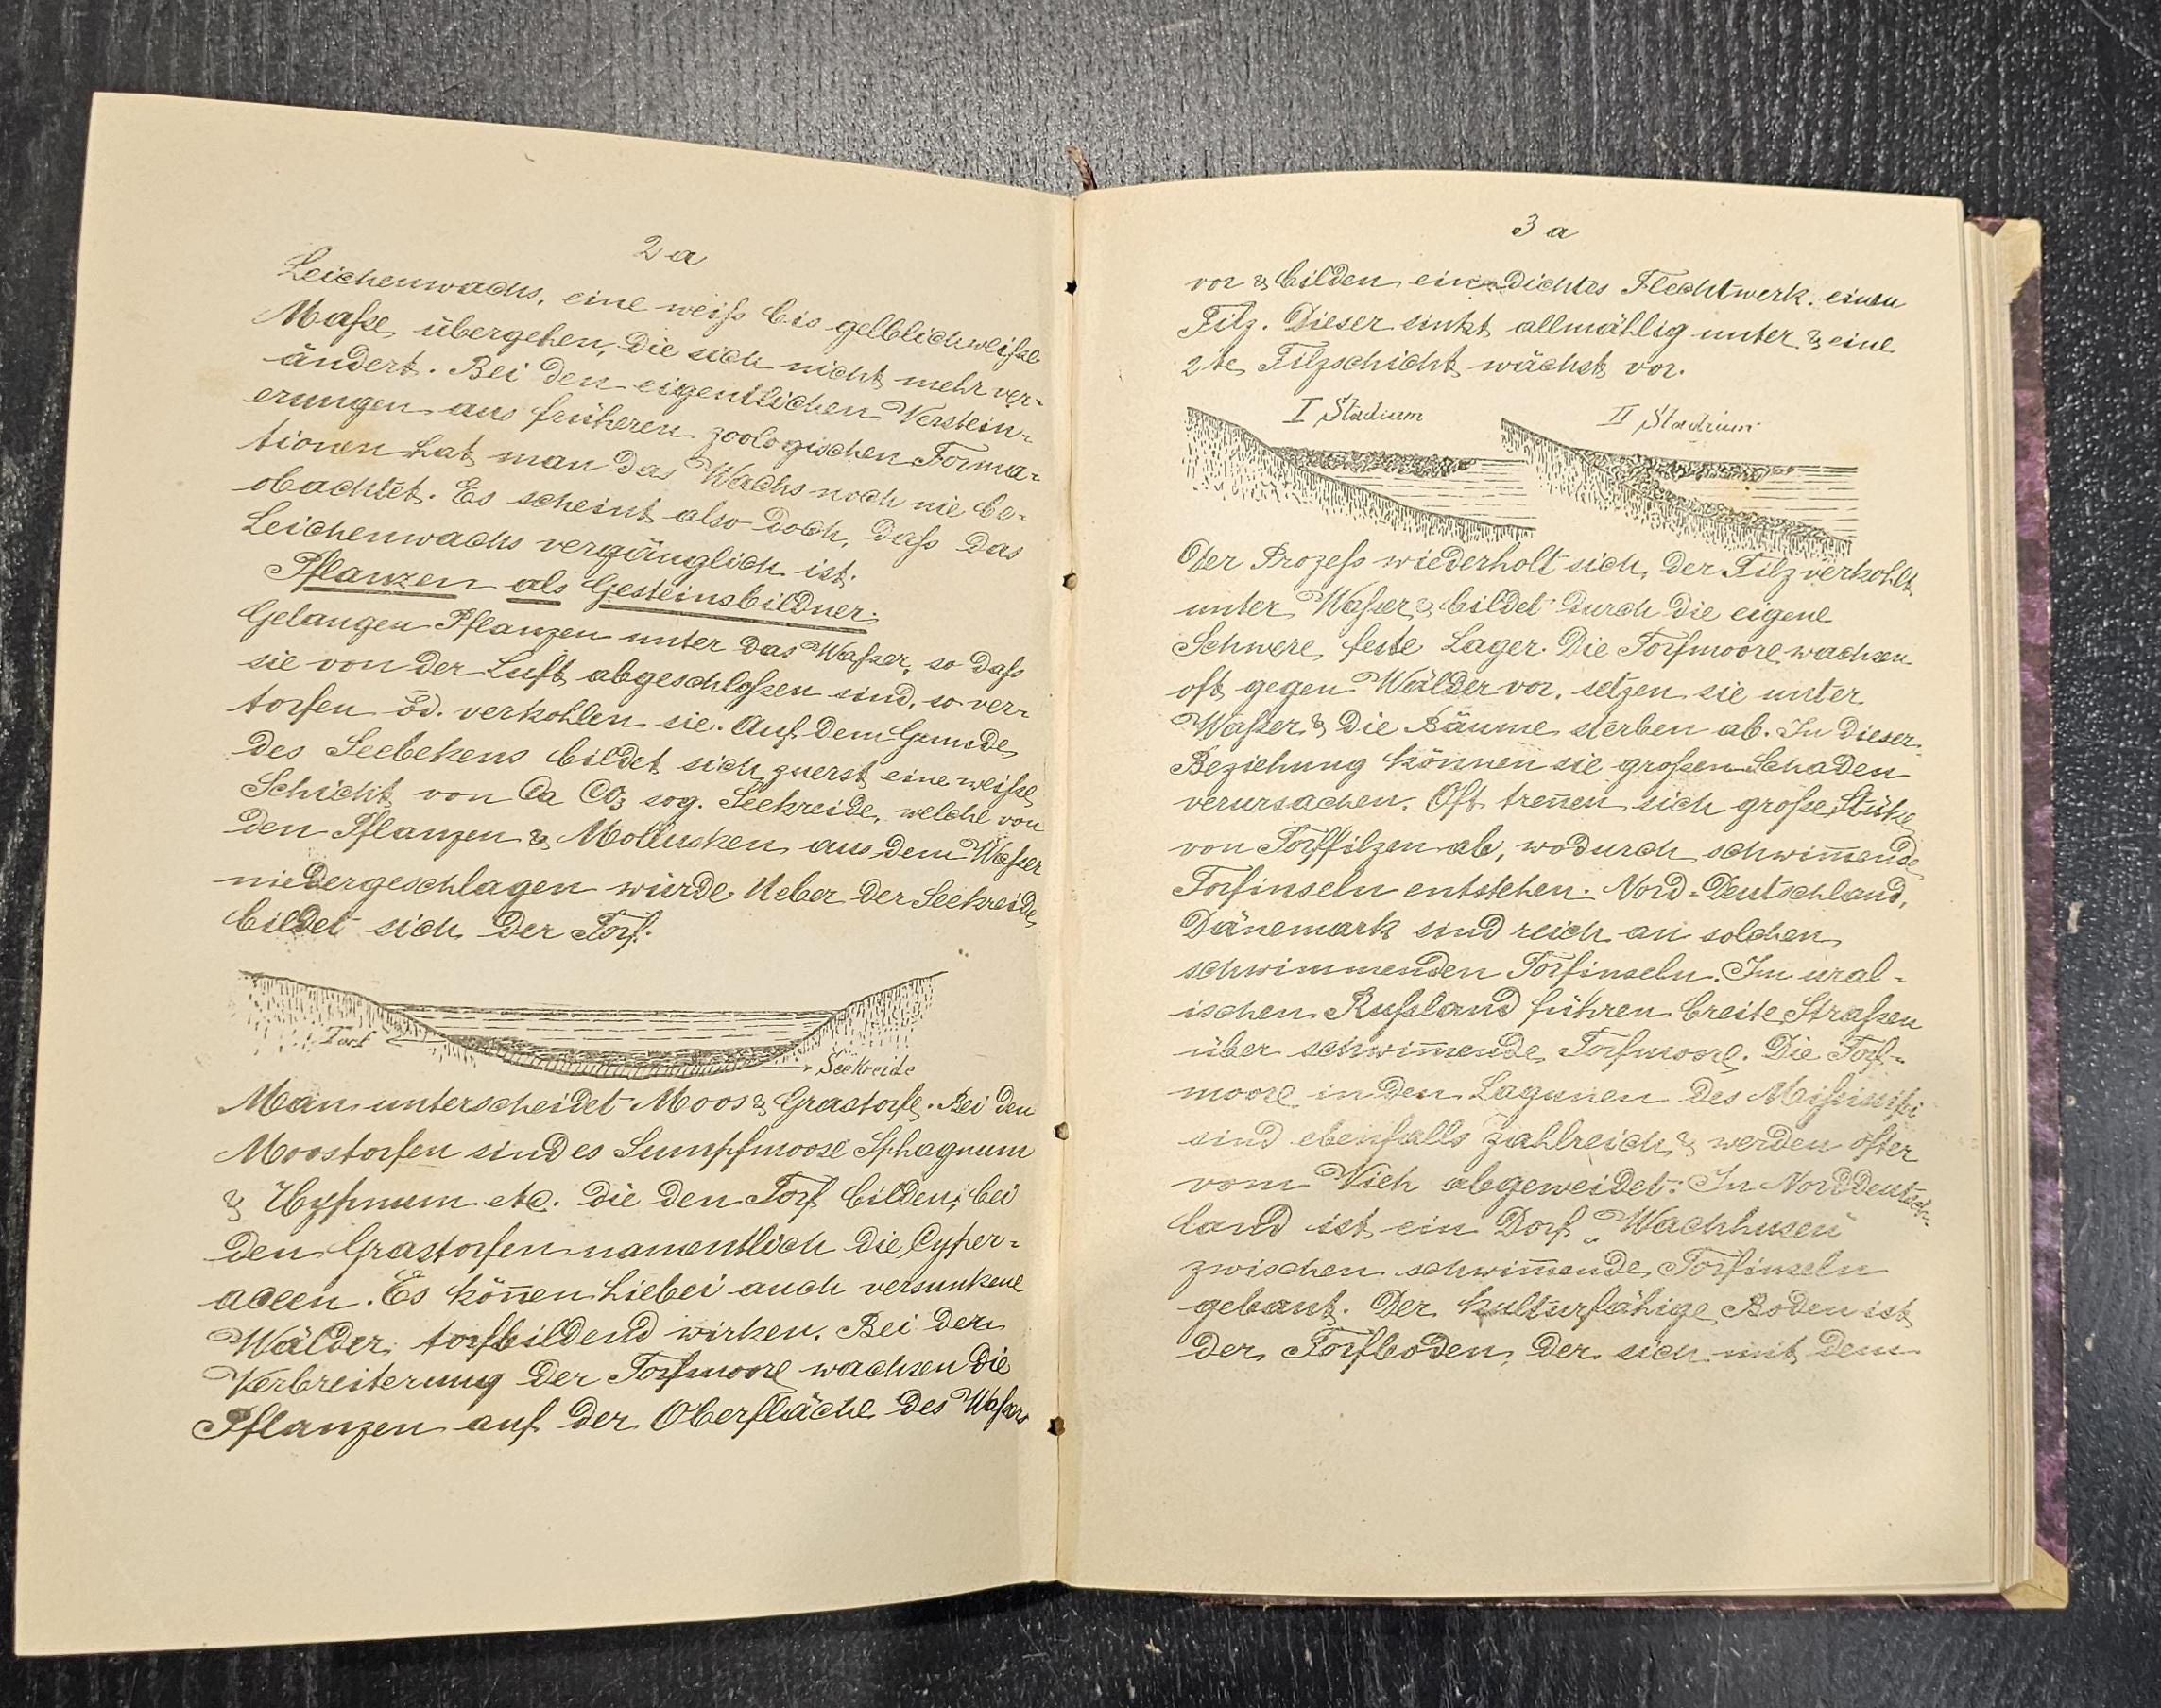 2 a
Leichenwachs, eine weiß bis gelblichweiße
Maße übergehen, die sich nicht mehr ver-
ändert. Bei den eigentlichen Verstein-
erungen aus früheren zoologischen Forma-
tionen hat man das Wachs noch nie be-
obachtet. Es scheint also doch, daß das
Leichenwachs vergänglich ist.
Pflanzen als Gesteinsbildner.
Gelangen Pflanzen unter das Waßer, so daß
sie von der Luft abgeschloßen sind, so ver-
torfen od. verkohlen sie. Auf dem Grunde
des Seebekens bildet sich zuerst eine weiße
Schicht von Ca CO3 sog. Seekreide, welche von
den Pflanzen & Mollusken aus dem Waßer
niedergeschlagen wurde. Ueber der Seekreide
bildet sich der Torf.
Torf
Seekreide
Man unterscheidet Moos & Grastorfe. Bei den
Moostorfen sind es Sumpfmoose Sphagnum
& Hypnum etc. die den Torf bilden; bei
den Grastorfen namentlich die Cyper-
aceen. Es köñen hiebei auch versunkene
Wälder torfbildend wirken. Bei der
Verbreiterung der Torfmoore wachsen die
Pflanzen auf der Oberfläche des Waßers
3 a
vor & bilden ein dichtes Flechtwerk, einen
Filz. Dieser sinkt allmählig unter & eine
2te Filzschicht wächst vor.
I Stadium
II Stadium
Der Prozeß wiederholt sich, der Filz verkohlt
unter Waßer & bildet durch die eigene
Schwere feste Lager. Die Torfmoore wachsen
oft gegen Wälder vor, setzen sie unter
Waßer & die Bäume sterben ab. In dieser
Beziehung können sie großen Schaden
verursachen. Oft treñen sich große Stüke
von Torffilzen ab, wodurch schwim̃ende
Torfinseln entstehen. Nord-Deutschland,
Dänemark sind reich an solchen
schwimmenden Torfinseln. Im ural-
ischen Rußland führen breite Straßen
über schwim̃ende Torfmoore. Die Torf-
moore in den Lagunen des Mißissipi
sind ebenfalls zahlreich & werden öfter
vom Vieh abgeweidet. In Norddeutsch-
land ist ein Dorf „Wachhusen"
zwischen schwim̃ende Torfinseln
gebaut. Der kulturfähige Boden ist
der Torfboden, der sich mit dem